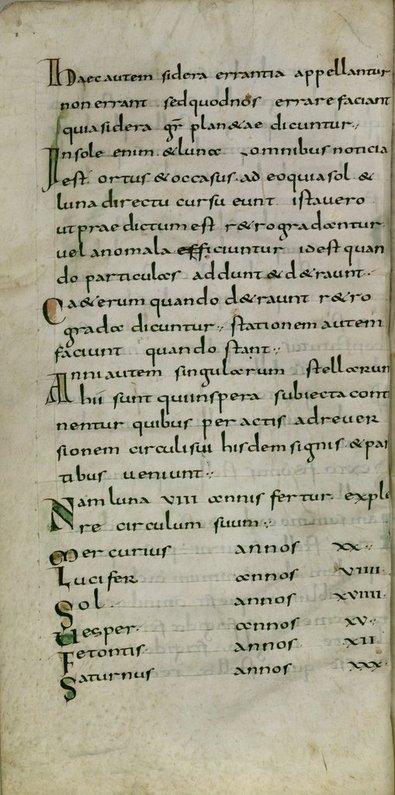 Haec autem sidera errantia appellantur
non errant sed quod nos errare faciant
quia sidera gr̄ plan&ae dicuntur.,
In sole enim & luna & omnibus noticia
est ortus & occasus. ad eo quia sol. &
luna directu cursu eunt istavero
ut prae dictum est r&rogradantur
vel anomala efficiuntur id est quan
do particulas addunt & d&raunt.
Ca&erum quando d&raunt r&ro
gradae dicuntur., stationem autem
faciunt quando stant.,
Anni autem singularum stellarum
hii sunt qui inspera subiecta cont
nentur quibus peractis ad rever
sionem circuli sui hisdem signis & par
tibus veniunt.,
Nam luna viiii annis fertur. exple
re circulum suum.,
Mercurius annos xx.,
Lucifer annos viiii
Sol. annos xviiii.
Vesper. annos xv.
Fetontis annos xii.
Saturnus annos xxx.